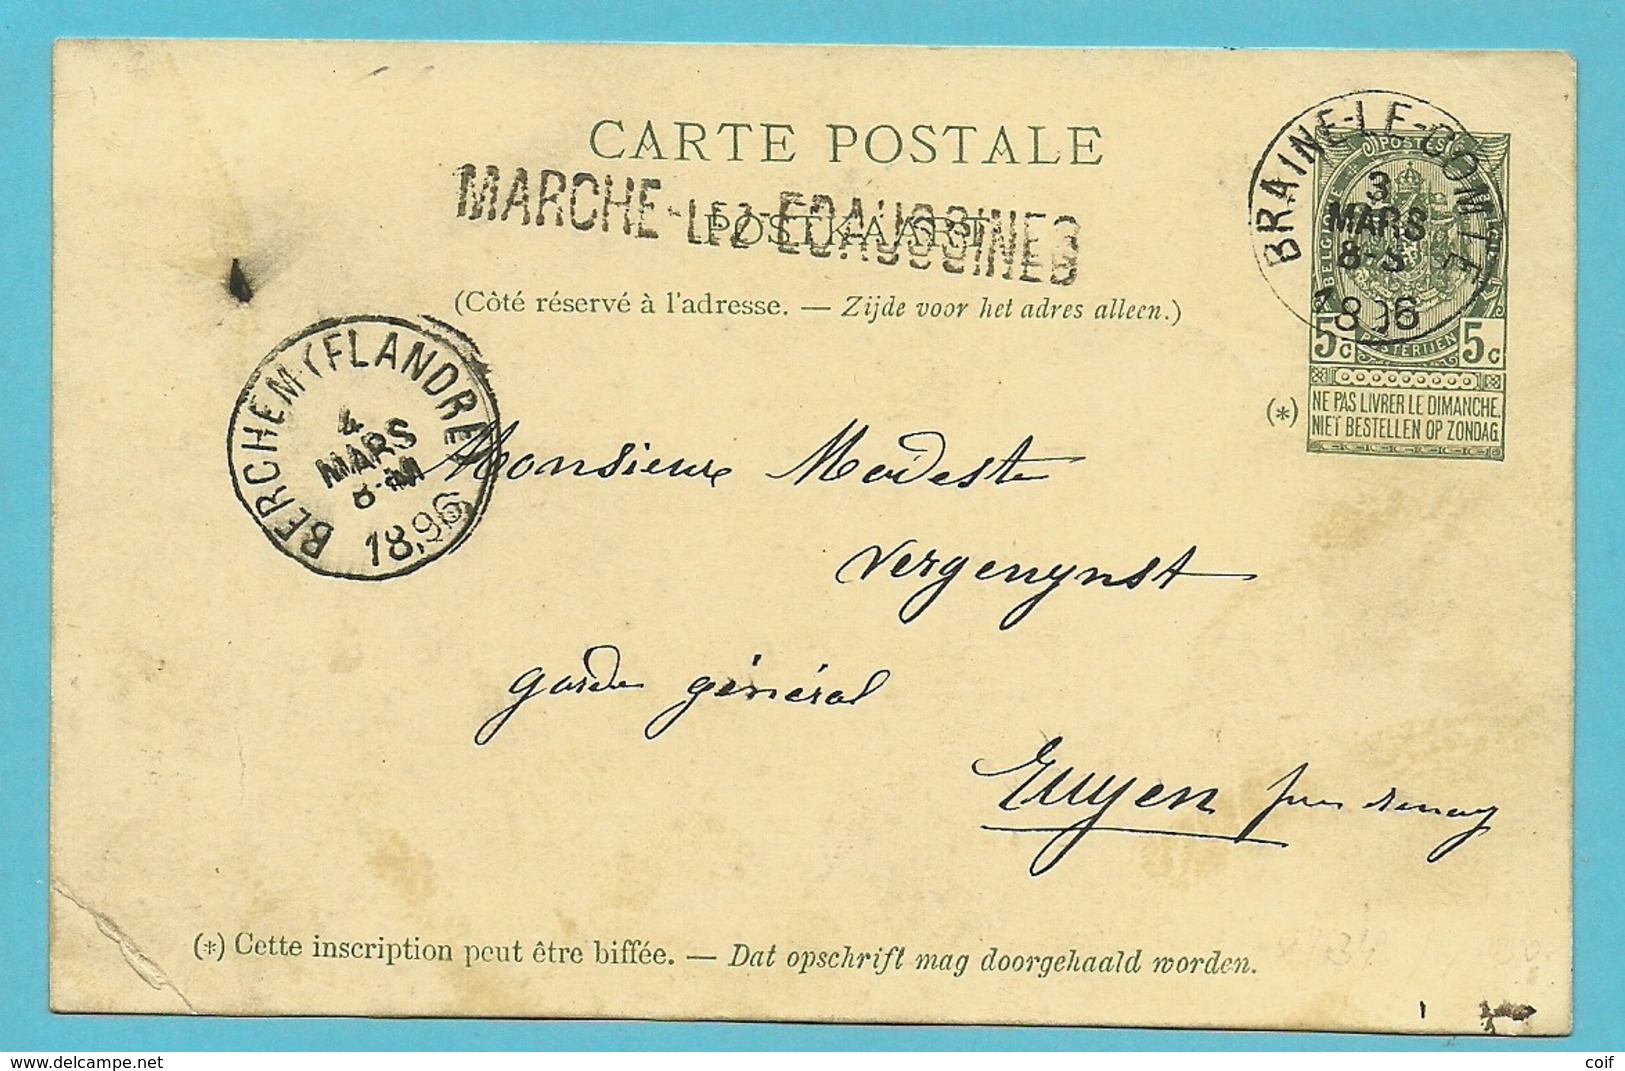 CARTE POSTALE
MARCHE-LEZ-ECAUSSINES
POSTKAART
(Côté réservé à l'adresse. — Zijde voor het adres alleen.)
BRAINE-LE-COMTE
3
MARS
8-S
1896
POSTES
BELGIQUE
POSTERIJEN
5c 5c
(*) NE PAS LIVRER LE DIMANCHE.
NIET BESTELLEN OP ZONDAG.
BERCHEM (FLANDRE)
4
MARS
8-M
1896
Monsieur Modeste
Vergenynst
garde général
Ruyen
(*) Cette inscription peut être biffée. — Dat opschrift mag doorgehaald worden.
coif